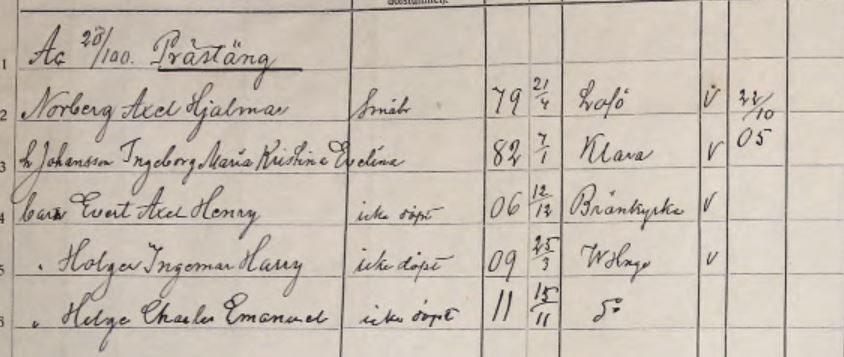 1 Ac 28/100. Prästäng
2 Norberg Axel Hjalmar Småbr 79 21/4 Lofö v 22/10 05
3 h Johansson Ingeborg Maria Kristina Evelina 82 7/1 Klara v
4 barn Evert Axel Henry icke döpt 06 12/12 Brännkyrka v
5 " Holger Ingemar Harry icke döpt 09 25/3 v
6 " Helge Charles Emanuel icke döpt 11 15/11 do